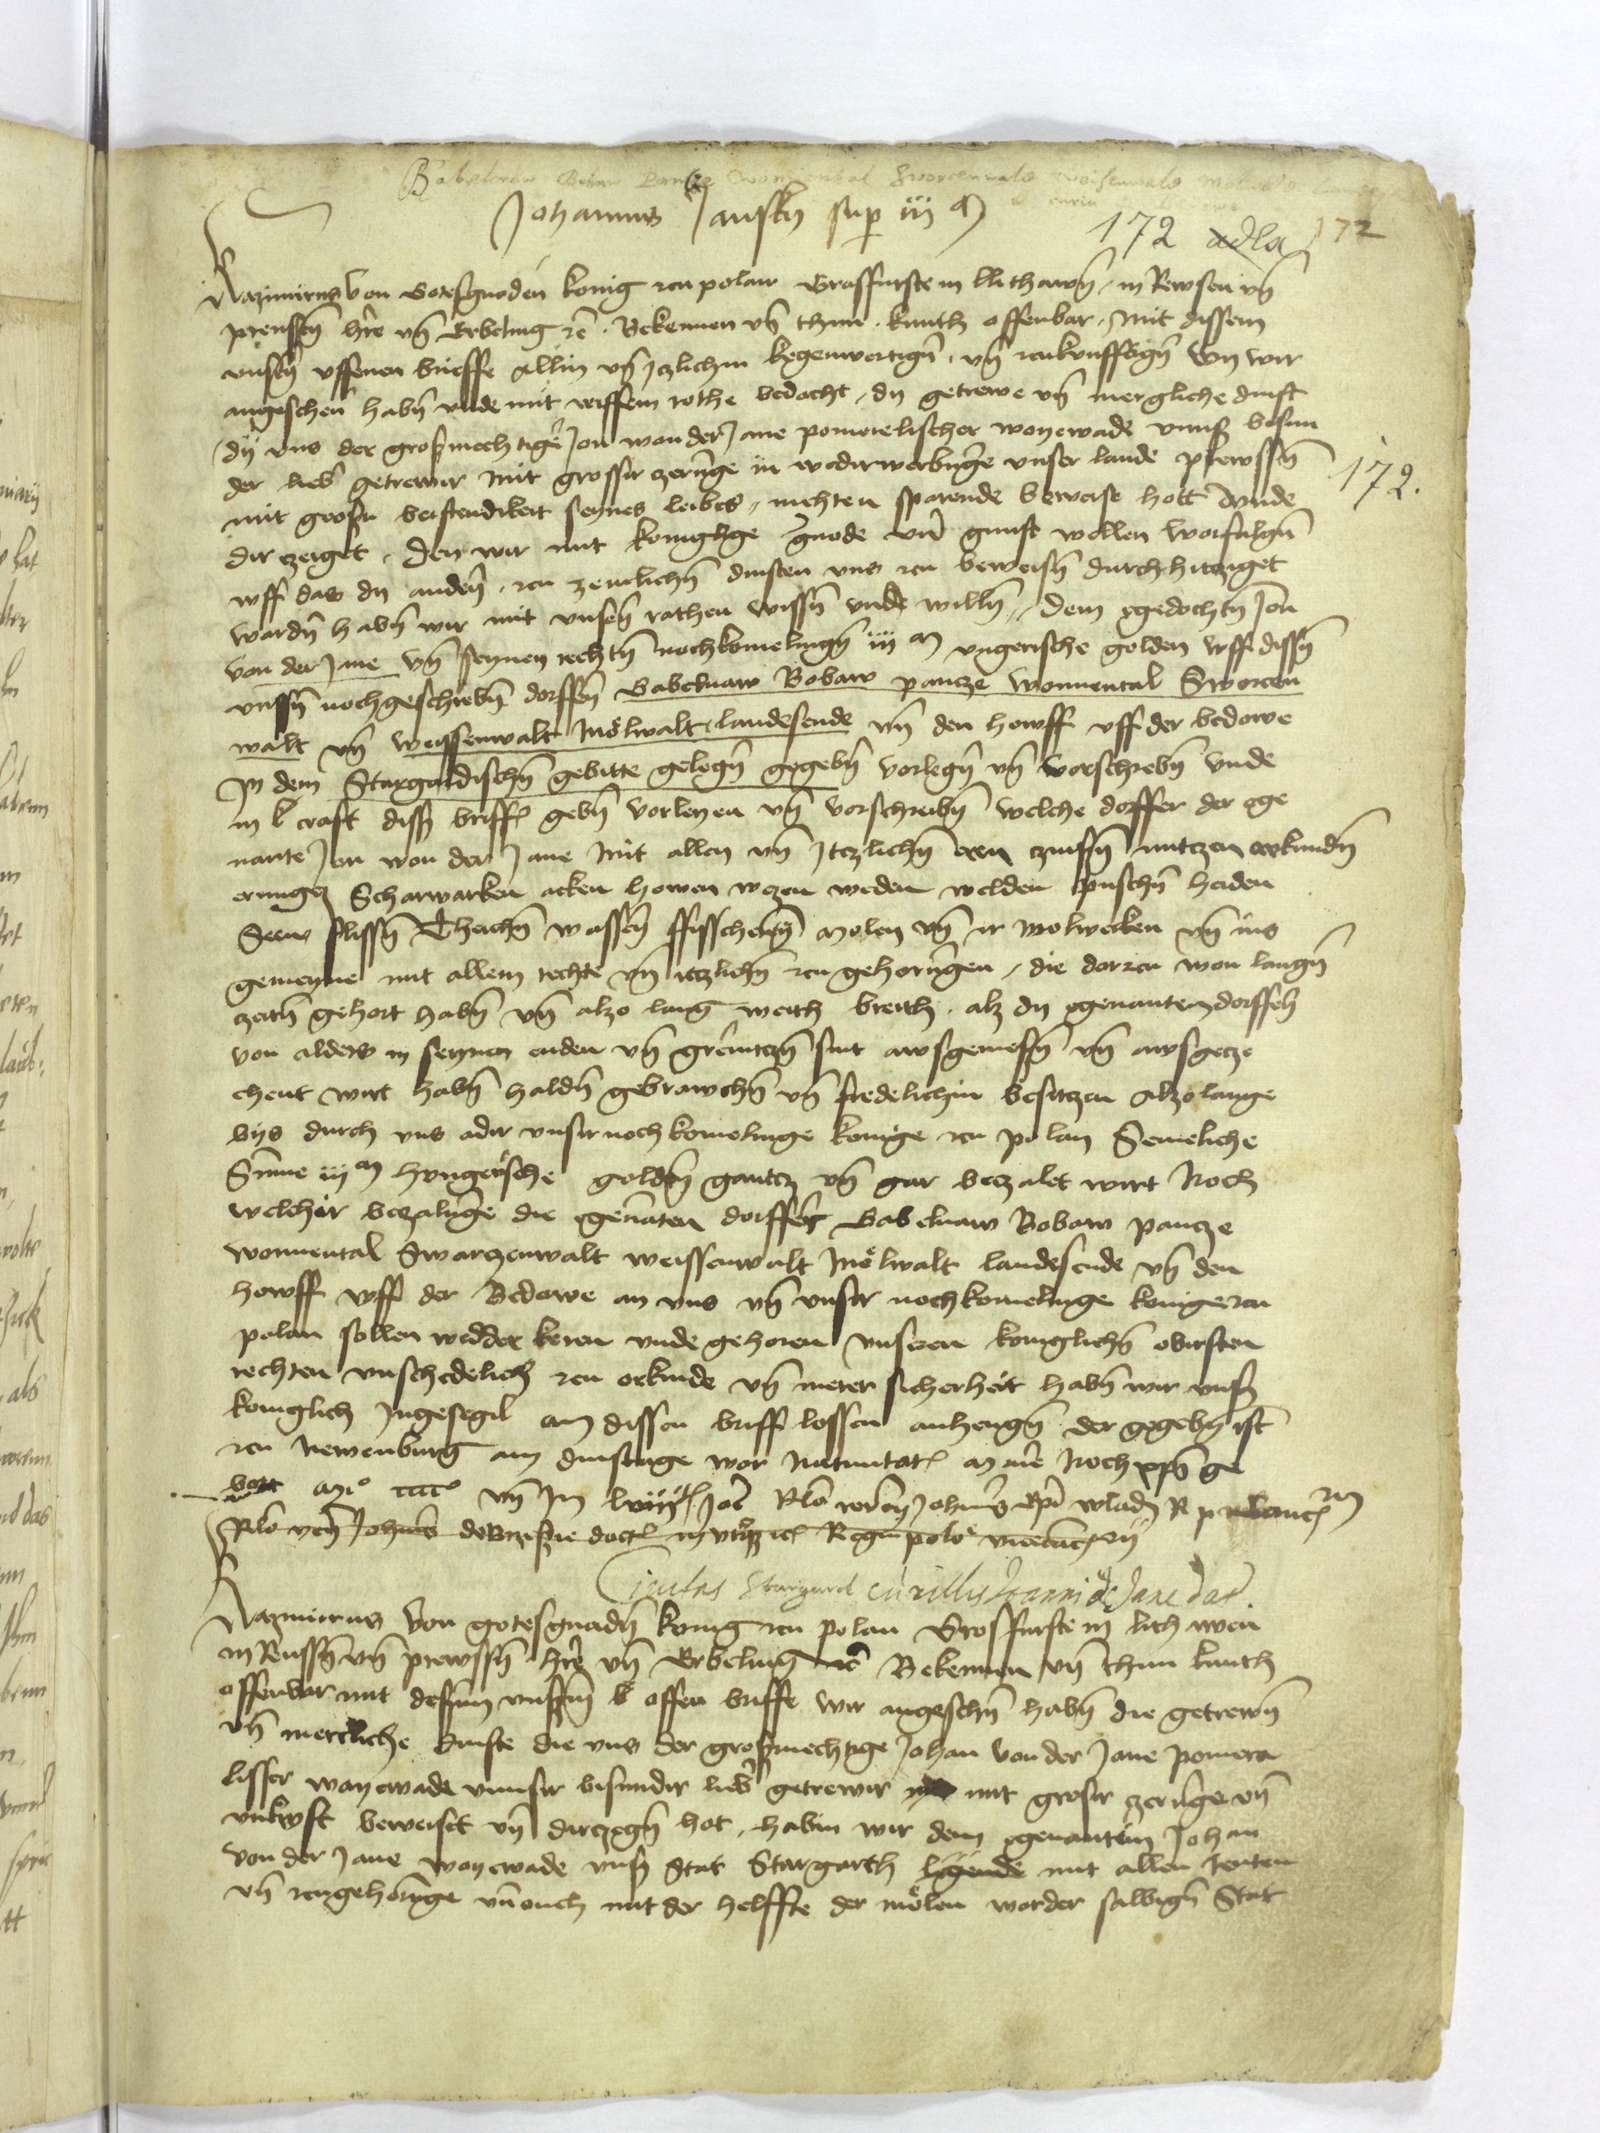 Johannis Jansky super iii m
172 172
Kazimirus von Gotesgnoden konig czu polan Grosffurste in llithawen in Rewsen vnd
prewssen here vnd Erbeling etc. Bekennen vnd thun kunth offenbar mit dissem
vnsern vffenen brieffe allen vnd iczlichin kegenwertigen vnd czukunfftigen wy wir
angeschen haben vnde mit reiffem rothe bedocht dy getrewe vnd mergliche dinst
dy vns der grosmechtiger Jon von der Jane pomerelischer woyewade vnnsser besun
der lieber getrewer mit grosser czerunge in wedirwerbunge vnser lande prewssen
172.
mit grosser bestendikeit seynes leibes nichten sparende beweise hott vnde
dirczeiget den wir mit konigliche gnode vnd gunst wellen vorfulgen
vff das dy andern czu zemlichen dinsten vns czu beweisen durch hitcziget
wurden haben wir mit vnsern rathen wissen vnde willen dem gedochten Jon
von der Jane vnd seynen rechten nochkomelingen iii m vngerische golden vff dissen
vnssen nochgeschreben dorffern Babelnaw Bobaw pancze wonnental Sworczen
walt vnd weissenwalt Mölwalt landesende vnd den howff vff der bedowe
In dem Stargardischen gebitte gelegen gegeben vorlegen vnd vorschreben vnde
in craft disses briffes geben vorleyen vnd vorschreiben welche dorffer der ge
nante Jon von der Jane mit allen vnd itczlichen czinsen nutczen
erunge Scharwarken acken howen wezen weden welden puschen heiden
Seen flissen Theichen wassern ffisschereyen molen vnd ir molwerken vnd ins
gemeyne mit allem rechte vnd itczlichen czu gehorungen die dorczu von langen
zeiten gehort haben vnd alzo lang weith breith alz dy genanten dorffere
von alders in seynen enden vnd grenitczen sint awsgemessen vnd awsgecze
chent wirt haben halden gebrawchen vnd fredelichin besitczen alzolange
bys durch vns adir vnser nochkomelinge konige czu polan Semeliche
Summe iii m hungerische golden gantcz vnd gar beczalet wirt Noch
welchir beczalunge die genanten dorffer Babelnaw Bobaw pancze
wonnental Swarczenwalt weissenwalt Mölwalt landesende vnd den
howff vff der Bedowe an vns vnd vnser nochkomelinge konige czu
polan sollen wedder keren vnde gehoren vnseren koniglichen obirsten
rechten vnschedelich czu orkunde vnd merer sicherheit haben wir vnser
koniglich Ingesegil an dissen briff lossen anhengen der gegeben ist
czu Newenburg am dinstage vor Natiuitatis Marie Noch xpi ge
bort mo cccco vnd Im
Rlo ven Johannis de Brzessie Regni polo vicecancellarii
Ciuitas Stargard cum villis Joanni de Jane dat
Kazimirus von gotesgnaden konig czu polan Grosffurste in lithawen
in Reussen vnd prewssen here vnd Erbeling etc Bekennen vnd thun kunth
offenbar mit desem vnsserm offen briffe wir angeschen haben die getrewen
vnd merckliche dinste die vns der grosmechtige Johan von der Jane pomera
lisser woyewade vnnser bisundir liber getrewer mit groser czerunge vnd
vnkost beweiset vnd dirczegen hot habin wir dem genantin Johan
von der Jane woyewade vnser Stat Stargarth mit allen renten
vnd czugehorunge vnd ouch mit der helffte der mölen vor der salbigen Stat